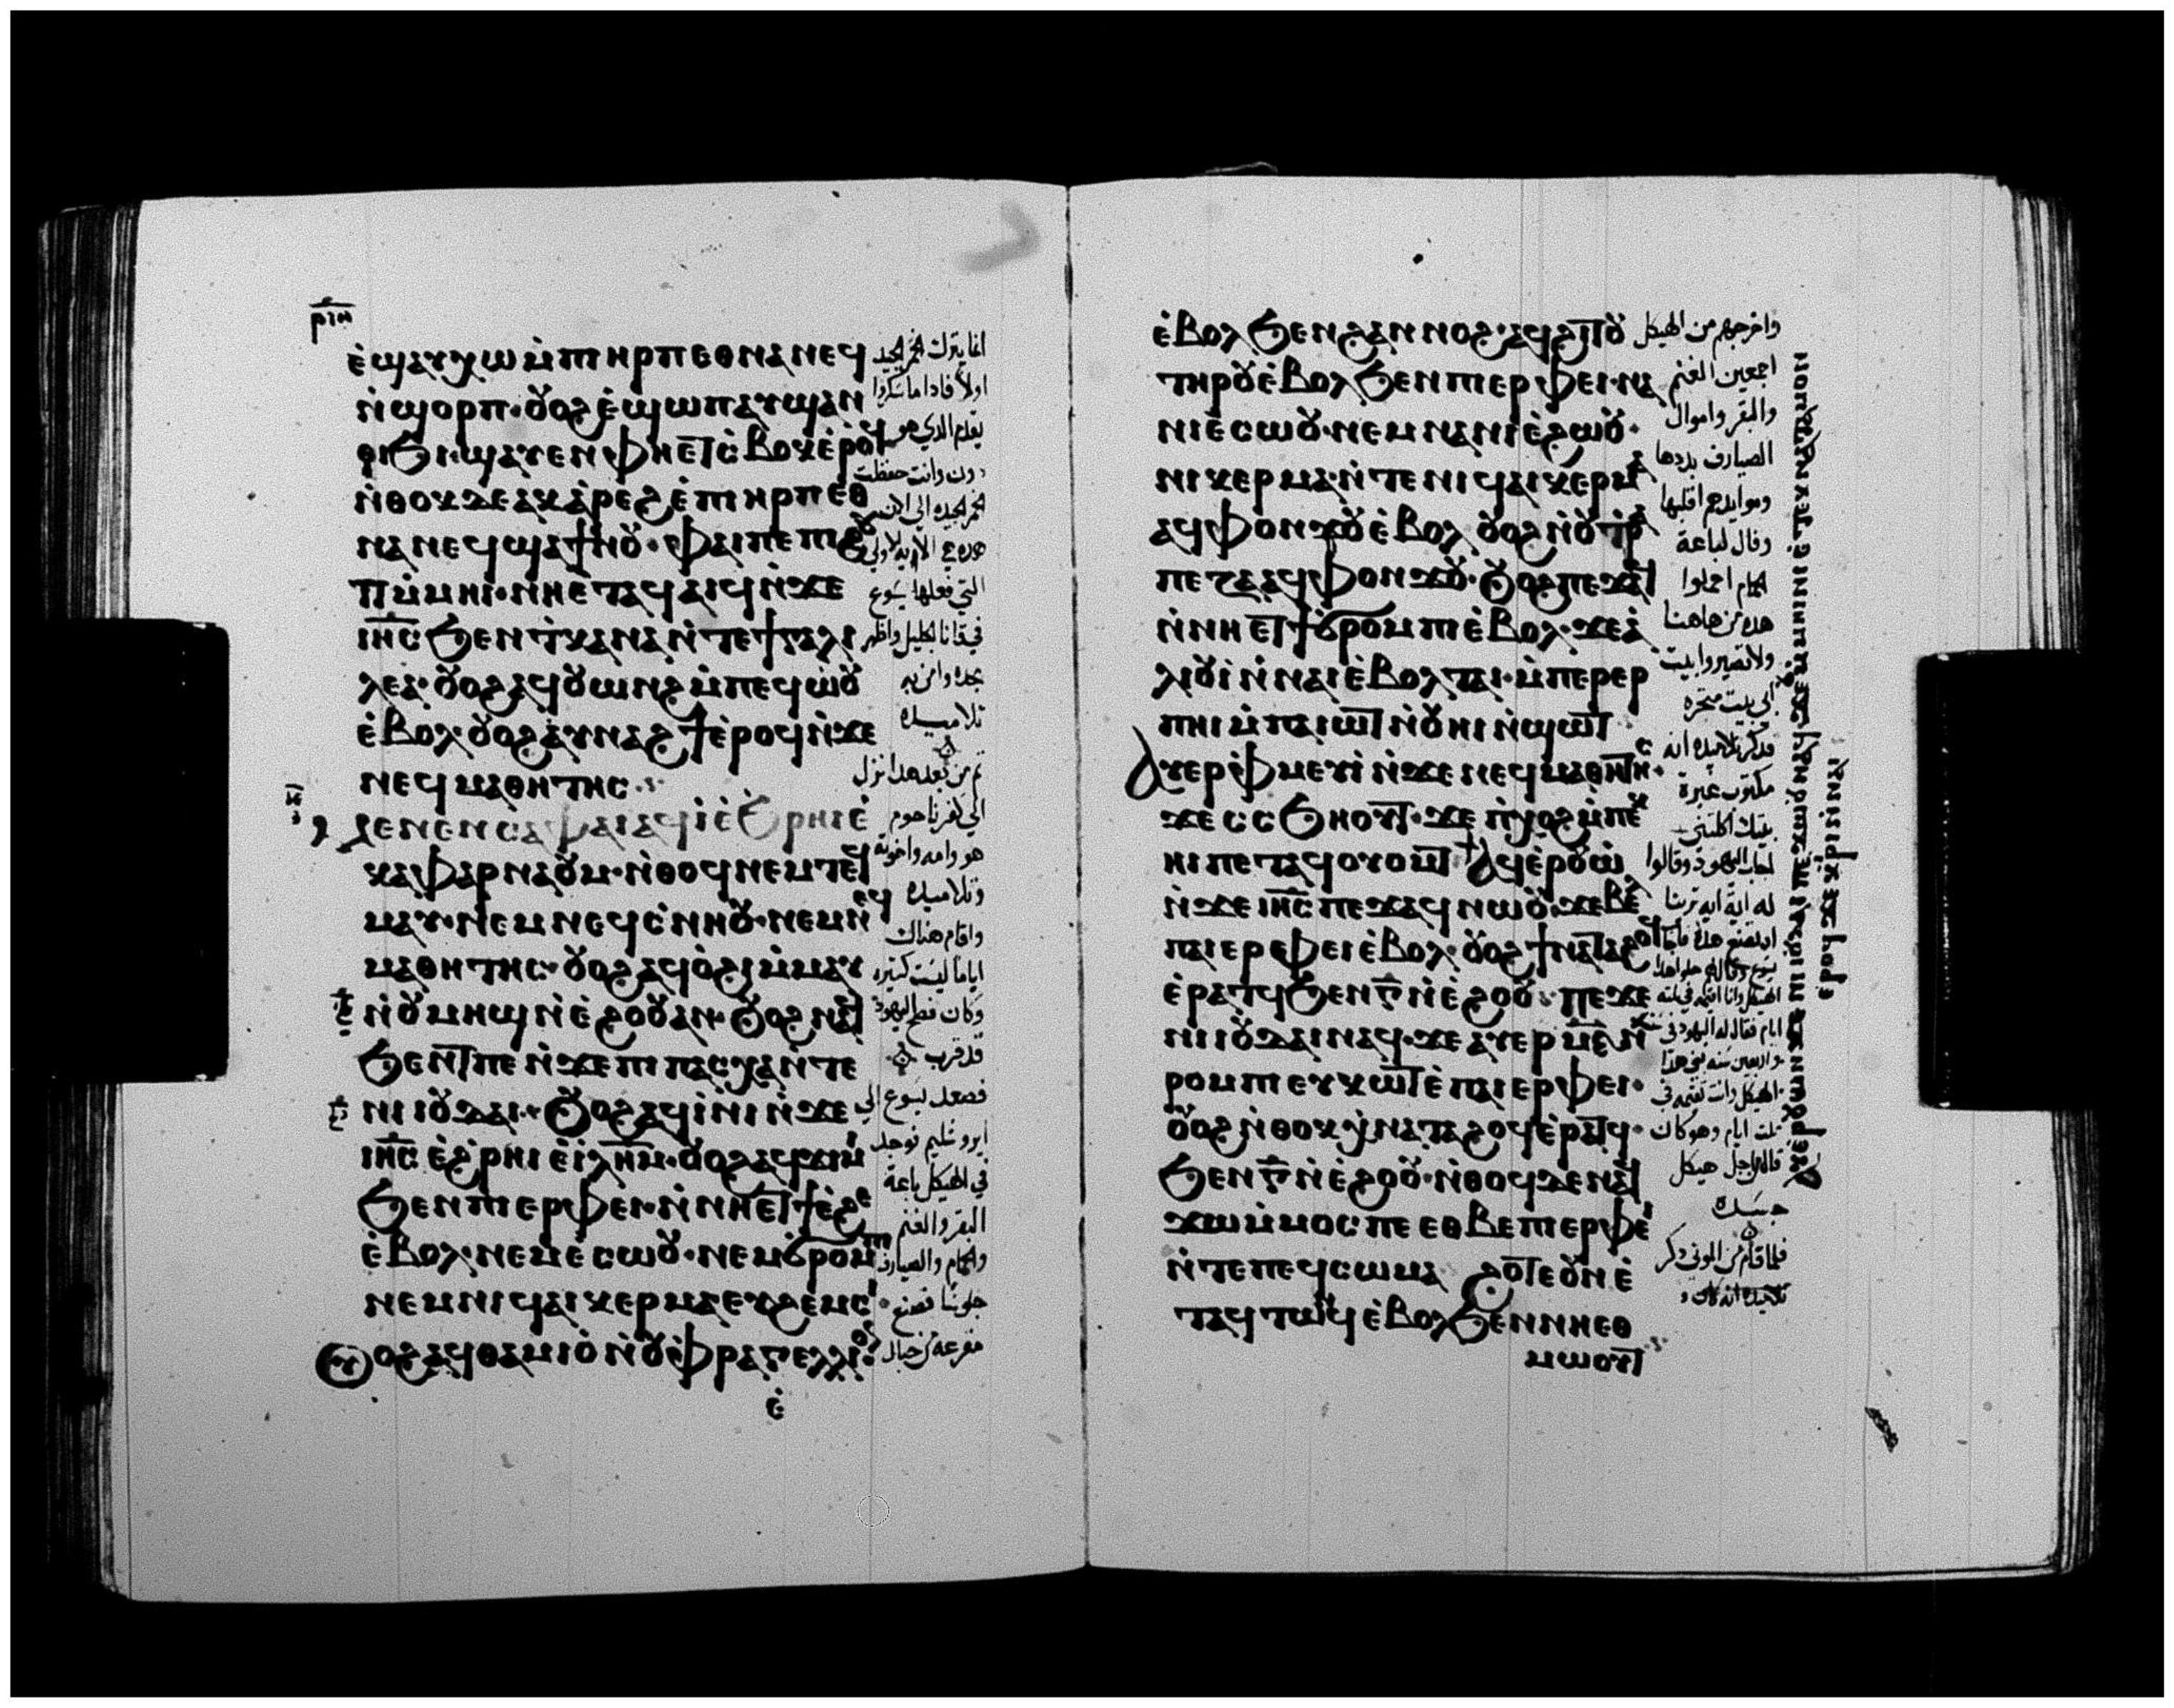 ⲣⲓⲏ
ⲉ̀ϣⲁⲩⲭⲱ ⲙ̀ⲡⲓⲏⲣⲡ ⲉⲑⲛⲁⲛⲉϥ
ⲛ̀ϣⲟⲣⲡ· ⲟⲩⲟϩ ⲉ̀ϣⲱⲡ ⲁⲩϣⲁⲛ
ⲑⲓϧⲓ· ϣⲁⲩⲉⲛ ⲫⲏⲉⲧϭⲃⲟⲕ ⲉ̀ⲣⲟϥ
ⲛ̀ⲑⲟⲕ ⲇⲉ ⲁⲕⲁ̀ⲣⲉϩ ⲉ̀ⲡⲓⲏⲣⲡ ⲉⲑ
ⲛⲁⲛⲉϥ ϣⲁϯⲛⲟⲩ· ⲫⲁⲓ ⲡⲉ ⲡⲓϩⲟⲩ
ⲓⲧ ⲙ̀ⲙⲏⲓⲛⲓ ⲉ̀ⲧⲁϥⲁⲓϥ ⲛ̀ϫⲉ
ⲓⲏ̅ⲥ̅ ϧⲉⲛ ϯⲕⲁⲛⲁ ⲛ̀ⲧⲉ ϯⲅⲁⲗⲓ
ⲗⲉⲁ· ⲟⲩⲟϩ ⲁϥⲟⲩⲱⲛϩ ⲙ̀ⲡⲉϥⲱ̀ⲟⲩ
ⲉ̀ⲃⲟⲗ· ⲟⲩⲟϩ ⲁⲩⲛⲁϩϯ ⲉ̀ⲣⲟϥ ⲛ̀ϫⲉ
ⲛⲉϥⲙⲁⲑⲏⲧⲏⲥ·
ⲙⲉⲛⲉⲛⲥⲁ ⲫⲁⲓ ⲁϥⲓ̀ ⲉ̀ϧⲣⲏⲓ ⲉ̀
ⲕⲁⲫⲁⲣⲛⲁⲟⲩⲙ· ⲛ̀ⲑⲟϥ ⲛⲉⲙ ⲧⲉϥ
ⲙⲁⲩ· ⲛⲉⲙ ⲛⲉϥⲥ̀ⲛⲏⲟⲩ· ⲛⲉⲙ ⲛⲉϥ
ⲙⲁⲑⲏⲧⲏⲥ· ⲟⲩⲟϩ ⲁϥⲟ̀ϩⲓ ⲙ̀ⲙⲁⲩ
ⲛ̀ⲟⲩⲙⲏϣ ⲛ̀ⲉ̀ϩⲟⲟⲩ ⲁⲛ· ⲟⲩⲟϩ ⲛⲁϥ
ϧⲉⲛⲧ ⲡⲉ ⲛ̀ϫⲉ ⲡⲓⲡⲁⲥⲭⲁ ⲛ̀ⲧⲉ
ⲛⲓⲓⲟⲩⲇⲁⲓ· ⲟⲩⲟϩ ⲁϥⲓ̀ⲛⲓ ⲛ̀ϫⲉ
ⲓⲏ̅ⲥ̅ ⲉ̀ϩⲣⲏⲓ ⲉ̀ⲓ̀ⲗⲏ̅ⲙ̅· ⲟⲩⲟϩ ⲁϥϫⲓⲙⲓ
ϧⲉⲛ ⲡⲓⲉⲣⲫⲉⲓ· ⲛ̀ⲛⲏⲉⲧϯ ⲉ̀ϩⲉ
ⲉ̀ⲃⲟⲗ· ⲛⲉⲙ ⲉ̀ⲥⲱⲟⲩ· ⲛⲉⲙ ϭⲣⲟⲙⲡⲓ
ⲛⲉⲙ ⲛⲓϥⲁⲓⲕⲉⲣⲙⲁ ⲉⲩϩⲉⲙⲥⲓ·
ⲟⲩⲟϩ ⲁϥⲑⲁⲙⲓⲟ̀ ⲛ̀ⲟⲩⲫⲣⲁⲅⲉⲗⲗⲓⲟⲛ
ⲉ̀
انما يترك الخمر الجيد
اولا فاذا ما سكروا
يقدم الذي هو
دون وانت حفظت
الخمر الجيده الى الان
هذه هي الايه الاولى
التي فعلها يسوع
في قانا الجليل واظهر
مجده وامن به
تلاميده
ثم من بعد هدا نزل
الى كفرناحوم
هو وامه واخوته
وتلاميده
واقام هناك
اياما ليست كتيره
وكان فصح اليهود
قد قرب
فصعد يسوع الى
ايروشليم فوجد
في الهيكل باعة
البقر والغنم
والحمام والصيارف
جلوسا فصنع
مقرعة من حبال
ⲉ̀ⲃⲟⲗ ϧⲉⲛ ϩⲁⲛⲛⲟϩ· ⲁϥϩⲓⲧⲟⲩ
ⲧⲏⲣⲟⲩ ⲉ̀ⲃⲟⲗ ϧⲉⲛ ⲡⲓⲉⲣⲫⲉⲓ· ⲛⲁ
ⲛⲓⲉ̀ⲥⲱⲟⲩ· ⲛⲉⲙ ⲛⲁ ⲛⲓⲉ̀ϩⲱⲟⲩ·
ⲛⲓⲕⲉⲣⲙⲁ ⲛ̀ⲧⲉ ⲛⲓϥⲁⲓⲕⲉⲣⲙⲁ
ⲁϥⲫⲟⲛϫⲟⲩ ⲉ̀ⲃⲟⲗ ⲟⲩⲟϩ ⲛ̀ⲟⲩⲧⲣⲁ
ⲡⲉⲍⲁ ⲁϥⲫⲟⲛϫⲟⲩ· ⲟⲩⲟϩ ⲡⲉϫⲁϥ
ⲛ̀ⲛⲏⲉⲧϯϭⲣⲟⲙⲡⲓ ⲉ̀ⲃⲟⲗ· ϫⲉ ⲁ̀
ⲗⲓⲟⲩⲓ̀ ⲛ̀ⲛⲁⲓ ⲉ̀ⲃⲟⲗ ⲧⲁⲓ· ⲙ̀ⲡⲉⲣⲉⲣ
ⲡⲏⲓ ⲙ̀ⲡⲁⲓⲱⲧ ⲛ̀ⲟⲩⲏⲓ ⲛ̀ϣⲱⲧ
ⲁⲩⲉⲣⲫⲙⲉⲩⲓ̀ ⲛ̀ϫⲉ ⲛⲉϥⲙⲁⲑⲏⲧⲏⲥ·
ϫⲉ ⲥⲥϧⲏⲟⲩⲧ· ϫⲉ ⲡ̀ⲭⲟϩ ⲙ̀ⲡⲉⲕ
ⲏⲓ ⲡⲉⲧⲁϥⲟⲩⲟⲙⲧ ⲁϥⲉ̀ⲣⲟⲩⲱ̀
ⲛ̀ϫⲉ ⲓⲏ̅ⲥ̅ ⲡⲉϫⲁϥ ⲛⲱⲟⲩ· ϫⲉ ⲃⲉⲗ
ⲡⲁⲓⲉⲣⲫⲉⲓ ⲉ̀ⲃⲟⲗ· ⲟⲩⲟϩ ϯⲛⲁⲧⲁϩⲟϥ
ⲉ̀ⲣⲁⲧϥ ϧⲉⲛ ⲅ̅ ⲛ̀ⲉ̀ϩⲟⲟⲩ· ⲡⲉϫⲉ
ⲛⲓⲓⲟⲩⲇⲁⲓ ⲛⲁϥ· ϫⲉ ⲁⲩⲉⲣ ⲙ̅ⲉ̅ ⲛ̀
ⲣⲟⲙⲡⲓ ⲉⲩⲕⲱⲧ ⲉ̀ⲡⲁⲓⲉⲣⲫⲉⲓ·
ⲟⲩⲟϩ ⲛ̀ⲑⲟⲕ ⲭ̀ⲛⲁⲧⲁϩⲟϥ ⲉ̀ⲣⲁⲧϥ·
ϧⲉⲛ ⲅ̅ ⲛ̀ⲉ̀ϩⲟⲟⲩ· ⲛ̀ⲑⲟϥ ⲇⲉ ⲛⲁϥ
ϫⲱ ⲙ̀ⲙⲟⲥ ⲡⲉ ⲉⲑⲃⲉ ⲡⲓⲉⲣⲫⲉⲓ
ⲛ̀ⲧⲉ ⲡⲉϥⲥⲱⲙⲁ ϩⲟⲧⲉ ⲟⲩⲛ ⲉ̀
ⲧⲁϥⲧⲱⲛϥ ⲉ̀ⲃⲟⲗ ϧⲉⲛ ⲛⲏⲉⲑ
ⲙⲱⲟⲩⲧ
واخرجهم من الهيكل
اجمعين الغنم
والبقر واموال
الصيارف بددها
وموايدهم اقلبها
وقال لباعة
الحمام احملوا
هده من هاهنا
ولا تصيروا بيت
ابي بيت متجره
فدكر تلاميده انه
مكتوب غيرة
بيتك اكلتني
اجاب اليهود وقالوا
له اية ايه ترينا
ايام فقال له اليهود في ستة
واربعين سنه بني هدا
الهيكل وانت تقيمه في
تلت ايام وهو كان
قال لاجل هيكل
جسده
فلما قام من الموتى دكر